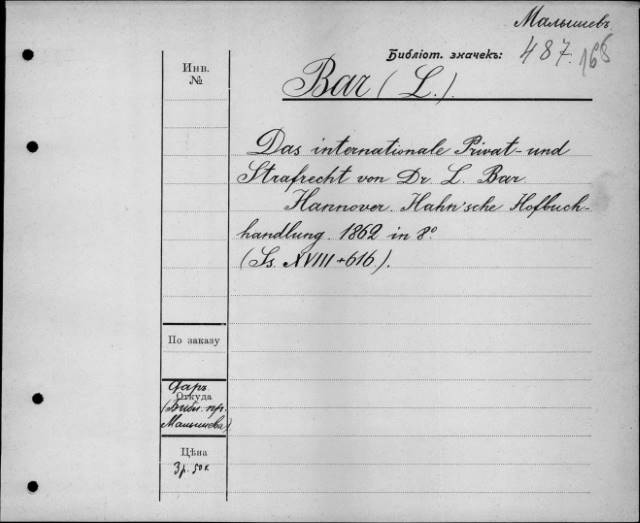 Малышевъ
Библіот. значекъ: 487.168
Инв.
№
Bar (L.).
Das internationale Privat- und
Strafrecht von Dr. L. Bar.
Hannover. Hahn'sche Hofbuch-
handlung. 1862 in 8º
(Ss. XVIII+616).
По заказу
Даръ
Откуда
(Библ. пр.
Малышева)
Цѣна
3 р. 50 к